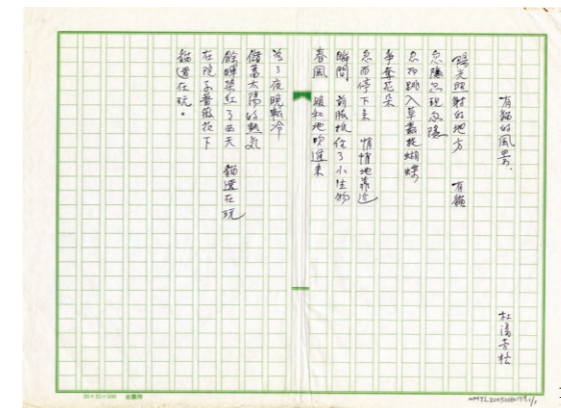 有貓的風景
杜潘芳格
陽光照射的地方　有貓
忽隱忽現
忽而跳入草叢捉蝴蝶
爭奪花朵
忽而停下來　悄悄地靠近
瞬間　前腳按住了小生物
春風　暖和地吹進來
為了夜晚轉冷
儲蓄太陽的熱氣
餘暉染紅了西天　貓還在玩
在院子薔薇花下
貓還在玩。